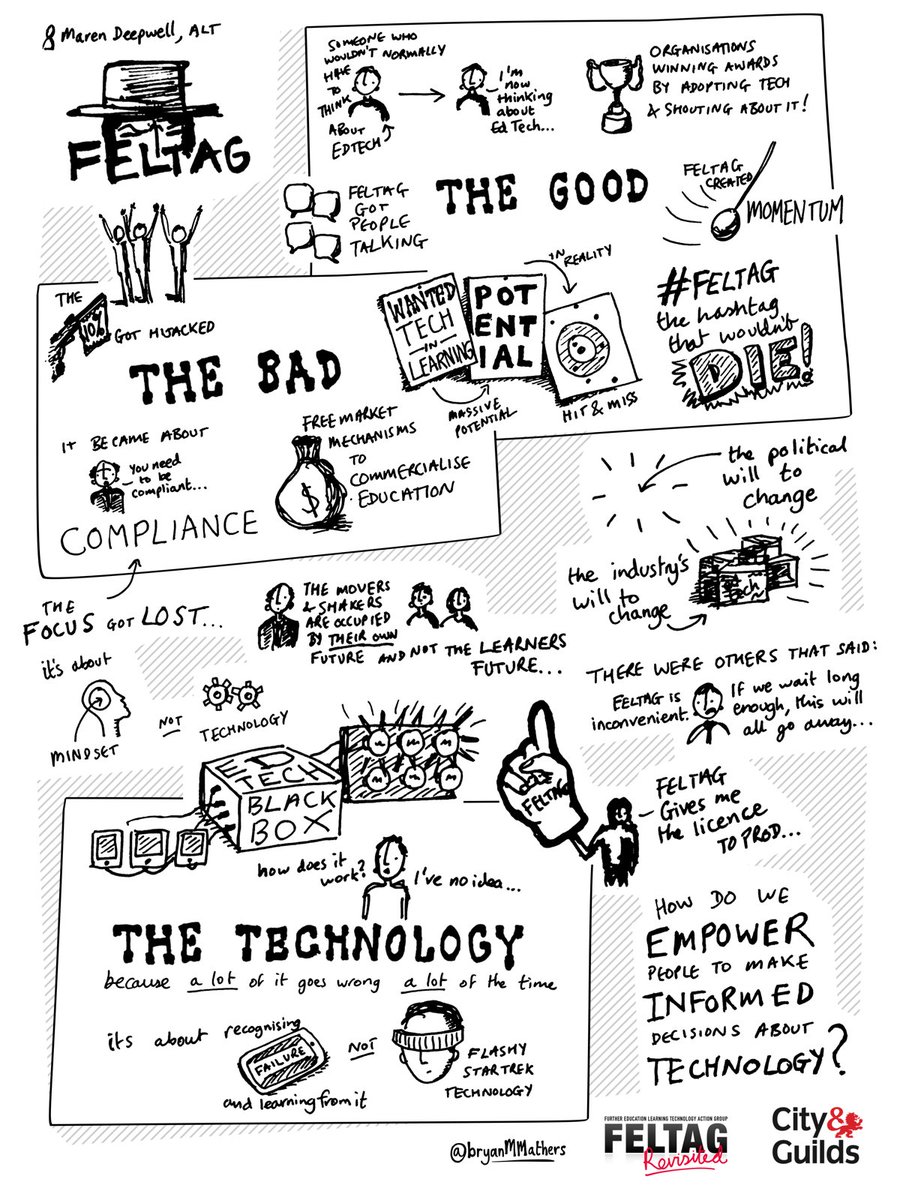 & Maren Deepwell, ALT
FELTAG
SOMEONE WHO
WOULDN'T NORMALLY
HAVE
TO
THINK
ABOUT
EDTECH
I'm
now
thinking
about
Ed Tech...
ORGANISATIONS
WINNING AWARDS
BY ADOPTING TECH
& SHOUTING ABOUT IT!
THE GOOD
FELTAG
GOT
PEOPLE
TALKING
FELTAG
CREATED
MOMENTUM
WANTED
TECH
IN
LEARNING
POT
ENT
IAL
IN
REALITY
MASSIVE
POTENTIAL
HIT & MISS
#FELTAG
the hashtag
that wouldn't
DIE!
THE
10%
GOT HIJACKED
THE BAD
IT BECAME ABOUT
You need
to be
compliant...
COMPLIANCE
FREE MARKET
MECHANISMS
TO
COMMERCIALISE
EDUCATION
the political
will to
change
the industry's
will to
change
Tech
THE
FOCUS GOT LOST...
it's about
MINDSET
NOT
TECHNOLOGY
THE MOVERS
& SHAKERS
ARE OCCUPIED
BY THEIR OWN
FUTURE AND NOT THE LEARNERS
FUTURE...
THERE WERE OTHERS THAT SAID:
FELTAG IS
inconvenient.
If we wait long
enough, this will
all go away...
ED
TECH
BLACK
BOX
FELTAG
FELTAG
Gives me
the licence
TO PROD...
how does it
work?
I've no idea...
THE TECHNOLOGY
because a lot of it goes wrong a lot of the time
its about recognising
FAILURE
and learning from it
NOT
FLASHY
STARTREK
TECHNOLOGY
HOW DO WE
EMPOWER
PEOPLE TO MAKE
INFORMED
DECISIONS ABOUT
TECHNOLOGY?
@bryanMMathers
FURTHER EDUCATION LEARNING TECHNOLOGY ACTION GROUP
FELTAG
Revisited
City&
Guilds